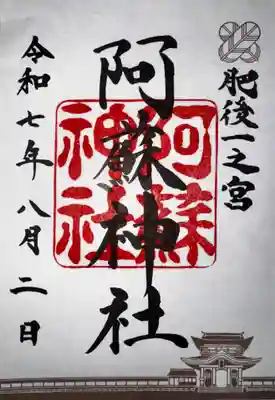 肥後一之宮
阿蘇神社
阿蘇神社
令和七年八月二日